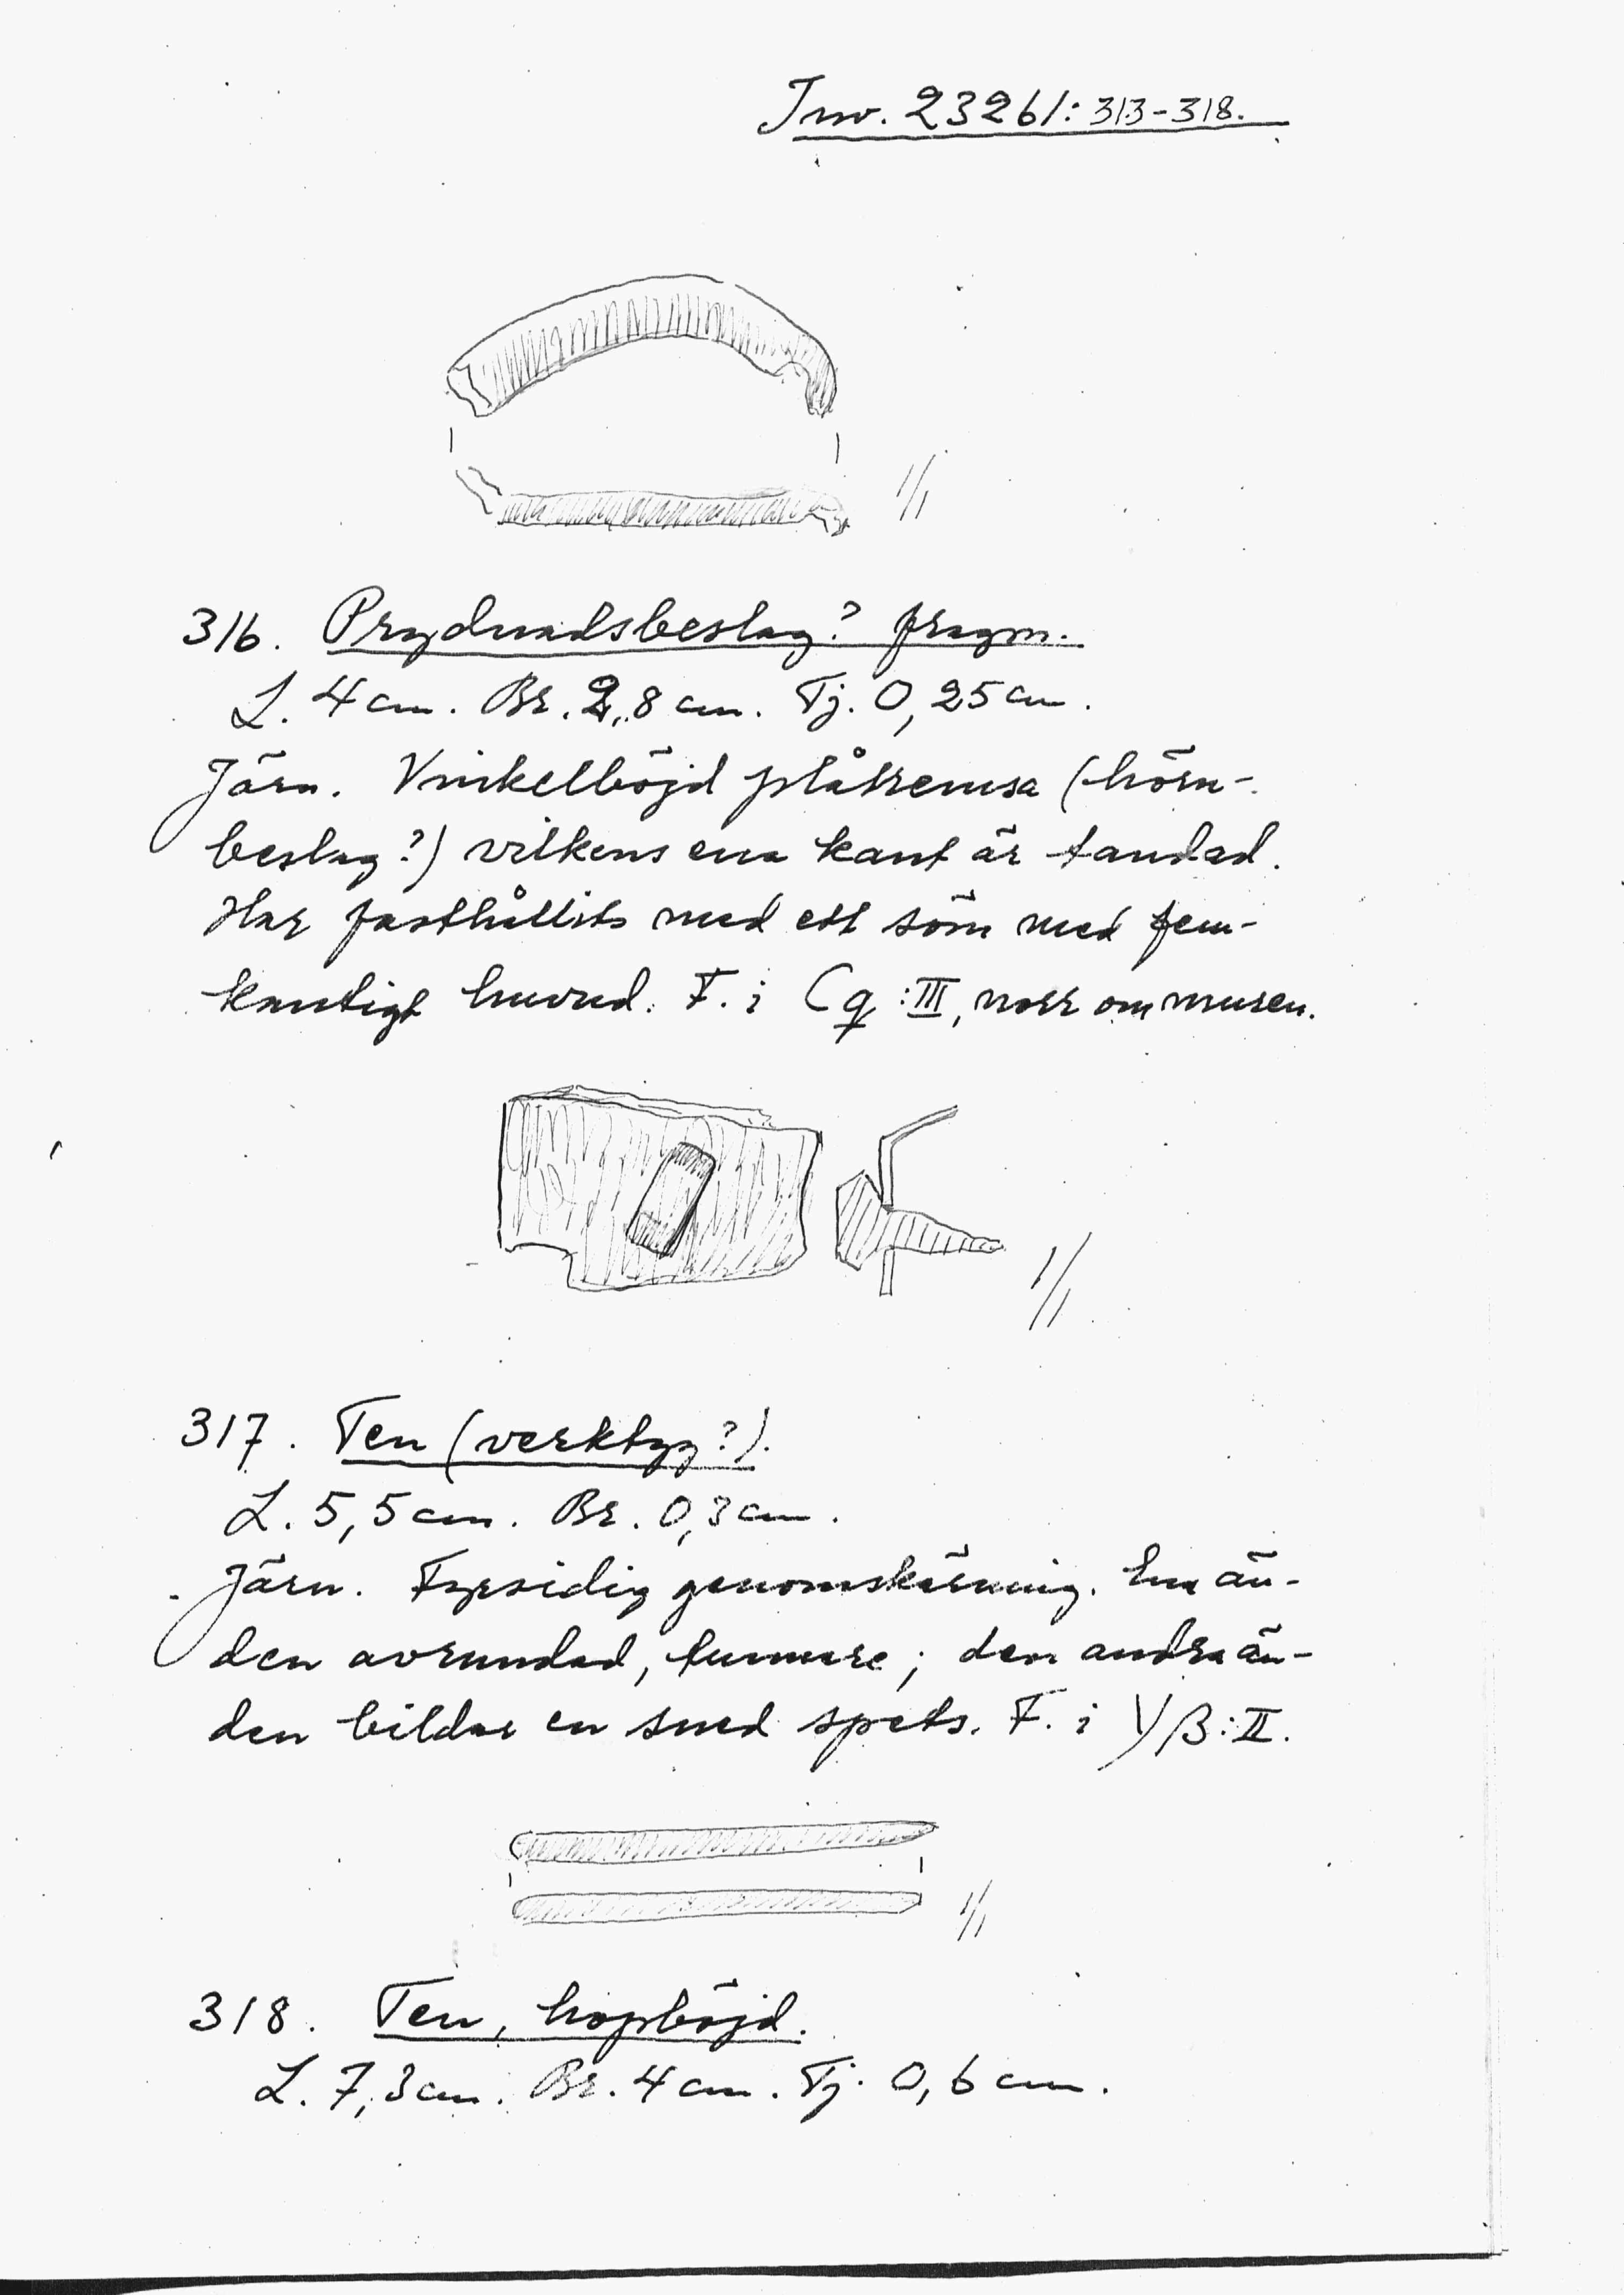 Inv. 23261: 313-318.
1/1
316. Prydnadsbeslag? fragm.
L. 4 cm. Br. 2,8 cm. Tj. 0,25 cm.
Järn. Vinkelböjd plåtremsa (hörn-
beslag?) vilkens ena kant är tandad.
Har fasthållits med ett söm med fem-
kantigt huvud. F. i Cq:III, norr om muren.
1/1
317. Ten (verktyg?).
L. 5,5 cm. Br. 0,3 cm.
Järn. Fyrsidig genomskärning. Ena än-
den avrundad, tunnare; den andra än-
den bildar en sned spets. F. i Yβ:II.
1/1
318. Ten, hopböjd.
L. 7,3 cm. Br. 4 cm. Tj. 0,6 cm.